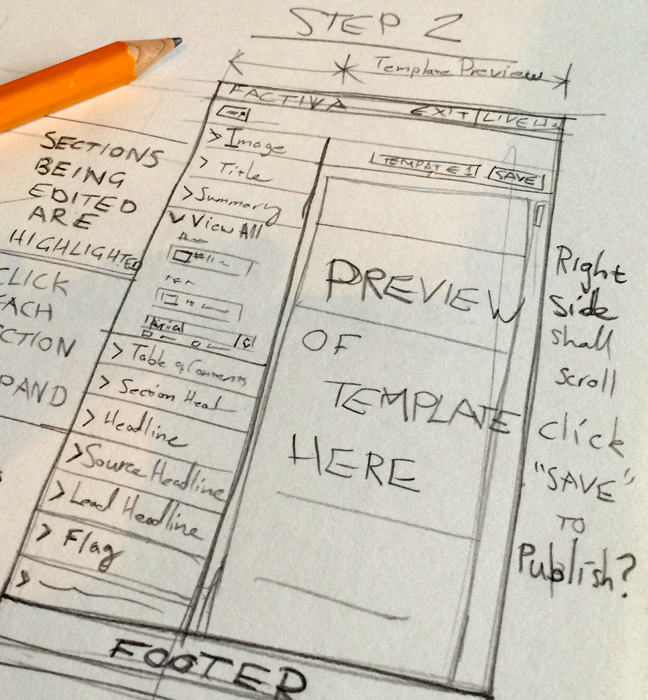 STEP 2
Template Preview
FACTIVA
EXIT
>Image
> Title
>Summary
View All
Arial
> Table of Contents
> Section Head
> Headline
>Source Headline
> Lead Headline
> Flag
>
SECTIONS
BEING
EDITED
ARE
HIGHLIGHTED
CLICK
SAVE
PREVIEW
OF
TEMPLATE
HERE
Right
side
shall
scroll
click
"SAVE"
TO
Publish?
FOOTER